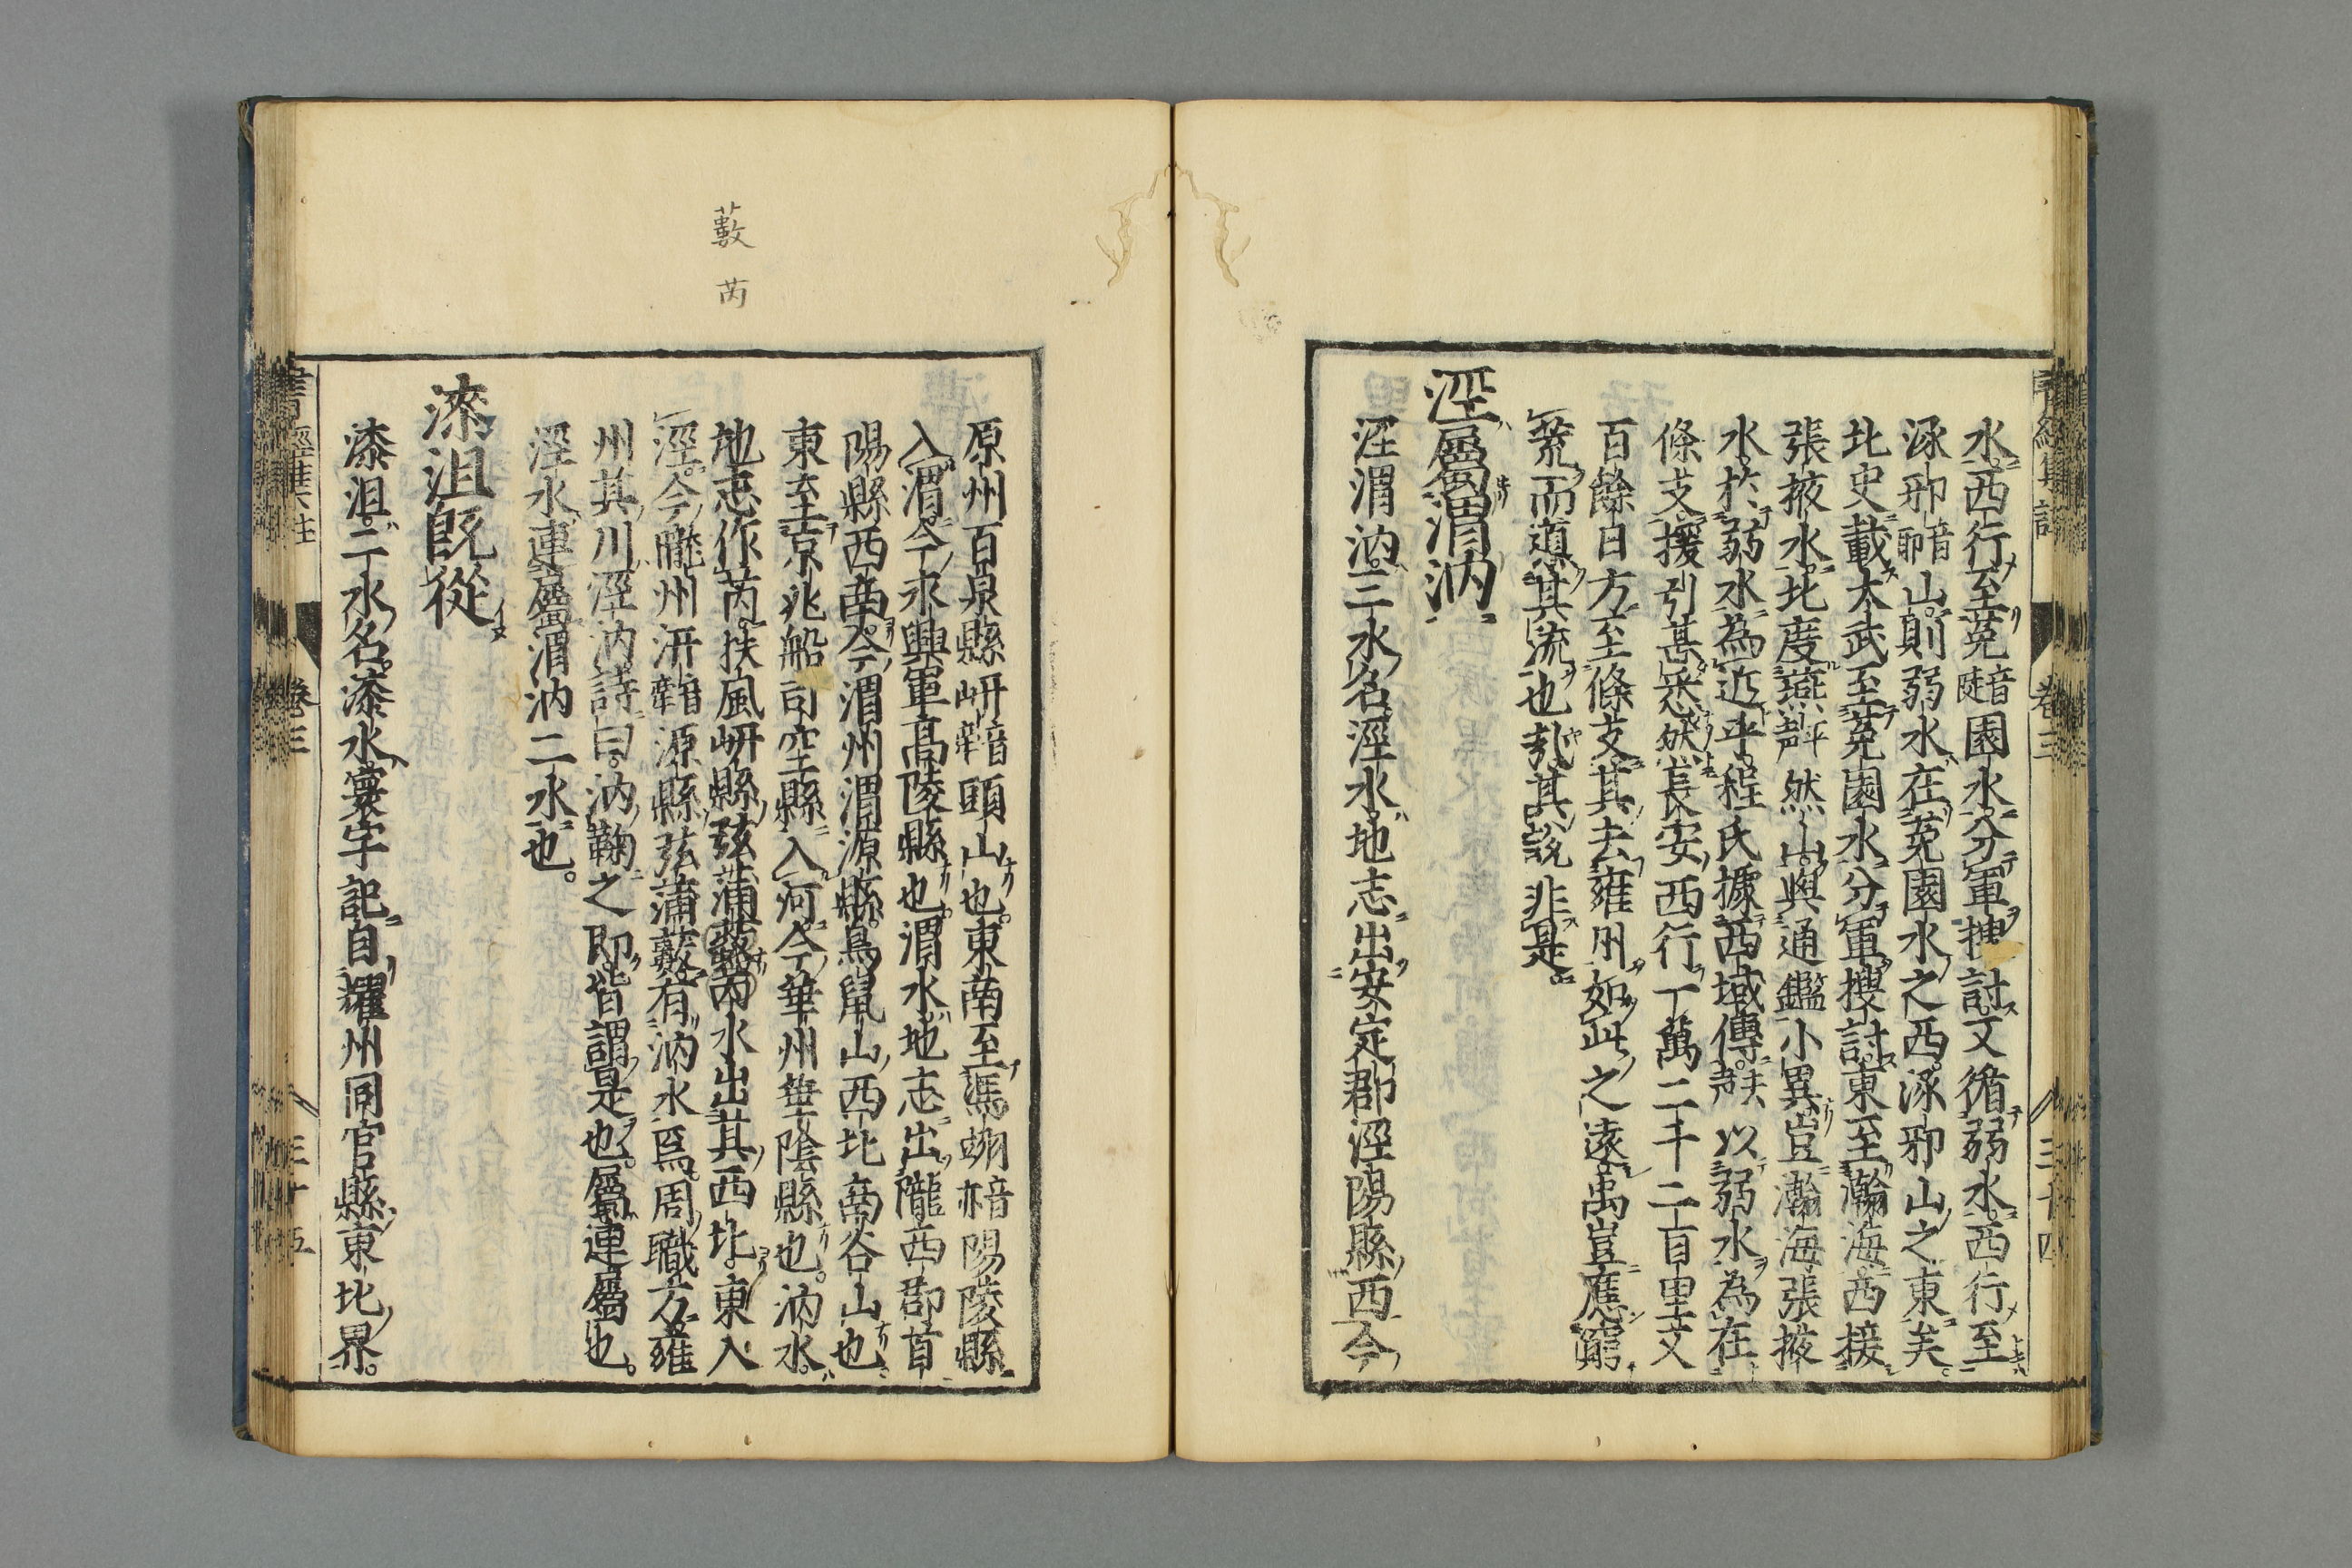 水西行至菟音塗園水分軍捜討又循弱水西行至
涿邪音耶山則弱水在菟園水之西涿邪山之東矣
北史載太武至菟園水分軍搜討東至瀚海西接
張掖水北度燕平声然山與通鑑小異豈瀚海張掖
水於弱水為近乎程氏據西域傳去声以弱水為在
條支援引甚悉然長安西行一萬二千二百里又
百餘日方至條支其去雍州如此之遠禹豈應窮
荒而導其流也哉其說非是
涇屬渭汭
涇渭汭三水名涇水地志出安定郡涇陽縣西今
卷三
三十四
原州百泉縣岍頭山也東南至馮翊音亦陽陵縣
入渭今永興軍高陵縣也渭水地志出隴西郡首
陽縣西南今渭州渭源縣鳥鼠山西北南谷山也
東至京兆船司空縣入河今華州華陰縣也汭水
地志作芮扶風岍縣弦蒲藪芮水出其西北東入
涇今隴州汧源縣弦蒲藪有汭水焉周職方雍
州其川涇汭詩曰汭鞫之即皆謂是也屬連屬也
涇水連屬渭汭二水也
漆沮既從
漆沮二水名漆水寰宇記自耀州同官縣東北界
卷三
三十五
藪
芮